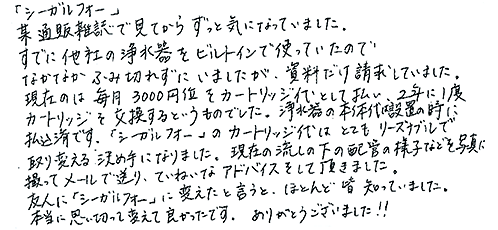 「シーガルフォー」
某通販雑誌で見てからずっと気になっていました。
すでに他社の浄水器をビルトインで使っていたので
なかなかふみ切れずにいましたが、資料だけ請求していました。
現在のは毎月3000円位をカートリッジ代として払い、2年に1度
カートリッジを交換するというものでした。浄水器の本体代は設置の時に
払込済です。「シーガルフォー」のカートリッジ代はとてもリーズナブルで
取り変える決め手になりました。現在の流しの下の配管の様子などを写真に
撮ってメールで送り、ていねいなアドバイスをして頂きました。
友人に「シーガルフォー」に変えたと言うと、ほとんど皆知っていました。
本当に思い切って変えて良かったです。ありがとうございました!!